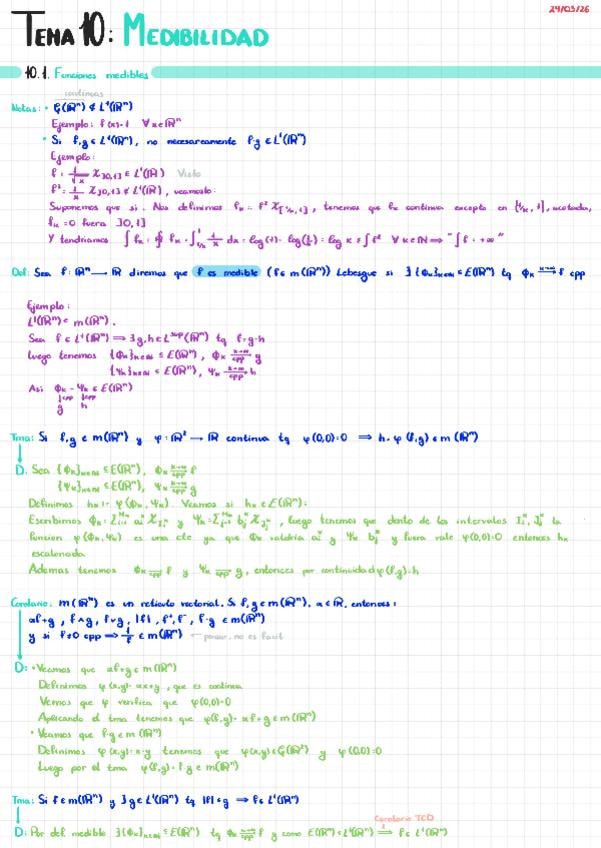 24/03/26
TEMA 10: MEDIBILIDAD
10.1. Funciones medibles
continuas
Notas: • C(ℝⁿ) ⊄ L¹(ℝⁿ)
Ejemplo: f(x)=1 ∀x∈ℝⁿ
• Si f,g ∈ L¹(ℝⁿ), no necesariamente f·g ∈ L¹(ℝⁿ)
Ejemplo:
f = 1/√x χ]0,1] ∈ L¹(ℝ) Visto
f² = 1/x χ]0,1] ∉ L¹(ℝ), veamoslo:
Suponemos que si. Nos definimos fₖ = f² χ[1/k,1], tenemos que fₖ continua excepto en {1/k, 1}, acotada,
fₖ = 0 fuera ]0,1]
Y tendriamos ∫fₖ = ∫₁/ₖ¹ 1/x dx = log(1) - log(1/k) = log k ≤ ∫f² ∀k∈ℕ ⟹ "∫f = +∞"
Def: Sea f: ℝⁿ → ℝ diremos que f es medible (f∈m(ℝⁿ)) Lebesgue si ∃{Φₖ}ₖ∈ℕ ⊆ E(ℝⁿ) tq Φₖ →(k→∞) f cpp
Ejemplo:
L¹(ℝⁿ) ⊂ m(ℝⁿ).
Sea f ∈ L¹(ℝⁿ) ⟹ ∃g,h ∈ Lˢᵘᵖ(ℝⁿ) tq f = g-h
luego tenemos {Φₖ}ₖ∈ℕ ⊆ E(ℝⁿ), Φₖ →(k→∞, cpp) g
{Ψₖ}ₖ∈ℕ ⊆ E(ℝⁿ), Ψₖ →(k→∞, cpp) h
Asi Φₖ - Ψₖ ∈ E(ℝⁿ)
↓cpp ↓cpp
g h
Tma: Si f,g ∈ m(ℝⁿ) y φ: ℝ² → ℝ continua tq φ(0,0)=0 ⟹ h = φ(f,g) ∈ m(ℝⁿ)
D: Sea {Φₖ}ₖ∈ℕ ⊆ E(ℝⁿ), Φₖ →(k→∞, cpp) f
{Ψₖ}ₖ∈ℕ ⊆ E(ℝⁿ), Ψₖ →(k→∞, cpp) g
Definimos hₖ := φ(Φₖ, Ψₖ). Veamos si hₖ ∈ E(ℝⁿ):
Escribimos Φₖ = Σ aᵢᵏ χIᵢᵏ y Ψₖ = Σ bⱼᵏ χJⱼᵏ, luego tenemos que dento de los intervalos Iᵢᵏ, Jⱼᵏ la
funcion φ(Φₖ, Ψₖ) es una cte ya que Φₖ valdria aᵢᵏ y Ψₖ bⱼᵏ y fuera vale φ(0,0)=0 entonces hₖ
escalonada.
Ademas tenemos Φₖ →cpp f y Ψₖ →cpp g, entonces por continuidad φ(f,g)=h
Corolario: m(ℝⁿ) es un reticulo vectorial. Si f,g∈m(ℝⁿ), α∈ℝ, entonces:
αf+g, f∧g, f∨g, |f|, f⁺, f⁻, f·g ∈ m(ℝⁿ)
y si f≠0 cpp ⟹ 1/f ∈ m(ℝⁿ) ← pensar, no es facil
D: • Veamos que αf+g ∈ m(ℝⁿ)
Definimos φ(x,y) = αx+y, que es continua
Vemos que φ verifica que φ(0,0)=0
Aplicando el tma tenemos que φ(f,g) = αf+g ∈ m(ℝⁿ)
• Veamos que f·g ∈ m(ℝⁿ)
Definimos φ(x,y) = x·y tenemos que φ(x,y) ∈ C(ℝ²) y φ(0,0)=0
Luego por el tma φ(f,g) = f·g ∈ m(ℝⁿ)
Tma: Si f∈m(ℝⁿ) y ∃g∈L¹(ℝⁿ) tq |f| ≤ g ⟹ f∈L¹(ℝⁿ)
Corolario TCD
D: Por def medible ∃{Φₖ}ₖ∈ℕ ⊆ E(ℝⁿ) tq Φₖ →(k→∞, cpp) f y como E(ℝⁿ) ⊂ L¹(ℝⁿ) ⟹ f∈L¹(ℝⁿ)